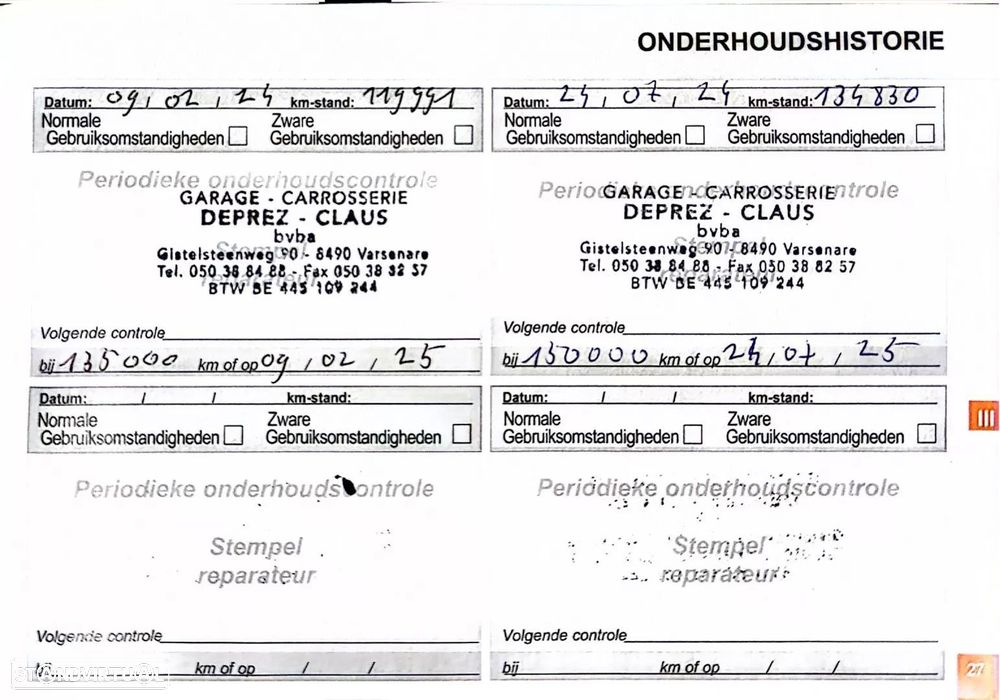 ONDERHOUDSHISTORIE
Datum: 09 / 02 / 24 km-stand: 119991
Normale Zware
Gebruiksomstandigheden Gebruiksomstandigheden
Periodieke onderhoudscontrole
GARAGE - CARROSSERIE
DEPREZ - CLAUS
bvba
Stempel
Gistelsteenweg 90 - 8490 Varsenare
Tel. 050 38 84 88 - Fax 050 38 82 57
reparateur
BTW BE 445 109 244
Volgende controle
bij 135000 km of op 09 / 02 / 25
Datum: 24 / 07 / 24 km-stand: 134830
Normale Zware
Gebruiksomstandigheden Gebruiksomstandigheden
Periodieke onderhoudscontrole
GARAGE - CARROSSERIE
DEPREZ - CLAUS
bvba
Stempel
Gistelsteenweg 90 - 8490 Varsenare
Tel. 050 38 84 88 - Fax 050 38 82 57
reparateur
BTW BE 445 109 244
Volgende controle
bij 150000 km of op 24 / 07 / 25
Datum: / / km-stand:
Normale Zware
Gebruiksomstandigheden Gebruiksomstandigheden
Periodieke onderhoudscontrole
Stempel
reparateur
Volgende controle
bij km of op / /
Datum: / / km-stand:
Normale Zware
Gebruiksomstandigheden Gebruiksomstandigheden
Periodieke onderhoudscontrole
Stempel
reparateur
Volgende controle
bij km of op / /
III
27
STANDVIRTUAL